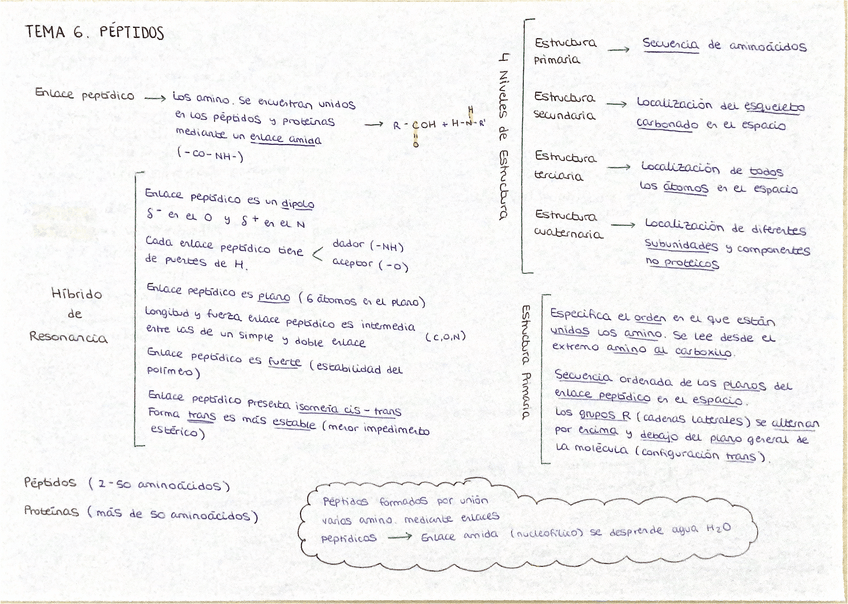 TEMA 6. PÉPTIDOS
Enlace peptídico → Los amino. se encuentran unidos
en los péptidos y proteínas
mediante un enlace amida
(-CO-NH-)
→ R-COH + H-N-R'
O
H
Híbrido
de
Resonancia
Enlace peptídico es un dipolo
δ⁻ en el O y δ⁺ en el N
Cada enlace peptídico tiene < dador (-NH)
de puentes de H. aceptor (-O)
Enlace peptídico es plano (6 átomos en el plano)
Longitud y fuerza enlace peptídico es intermedia
entre las de un simple y doble enlace (C,O,N)
Enlace peptídico es fuerte (estabilidad del
polímero)
Enlace peptídico presenta isomería cis-trans
Forma trans es más estable (menor impedimento
estérico)
Péptidos (2-50 aminoácidos)
Proteínas (más de 50 aminoácidos)
4 Niveles de Estructura
Estructura primaria → Secuencia de aminoácidos
Estructura secundaria → Localización del esqueleto
carbonado en el espacio
Estructura terciaria → Localización de todos
los átomos en el espacio
Estructura cuaternaria → Localización de diferentes
subunidades y componentes
no proteicos
Estructura Primaria
Especifica el orden en el que están
unidos los amino. Se lee desde el
extremo amino al carboxilo.
Secuencia ordenada de los planos del
enlace peptídico en el espacio.
Los grupos R (cadenas laterales) se alternan
por encima y debajo del plano general de
la molécula (configuración trans).
Péptidos formados por unión
varios amino. mediante enlaces
peptídicos → Enlace amida (nucleofílico) se desprende agua H₂O